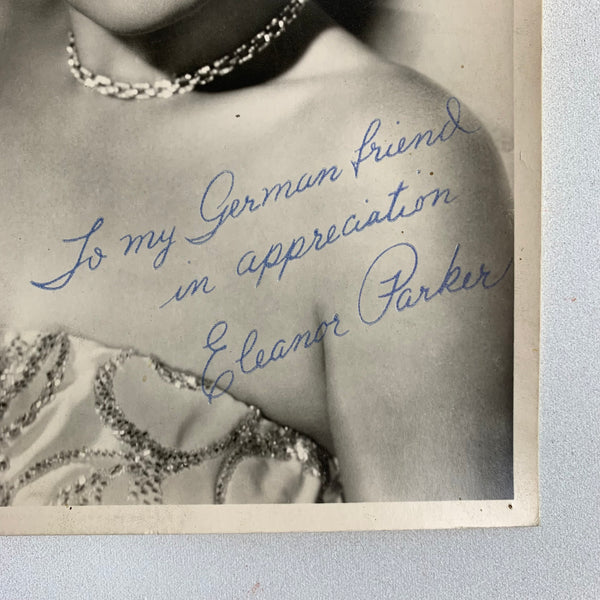 To my German friend
in appreciation
Eleanor Parker